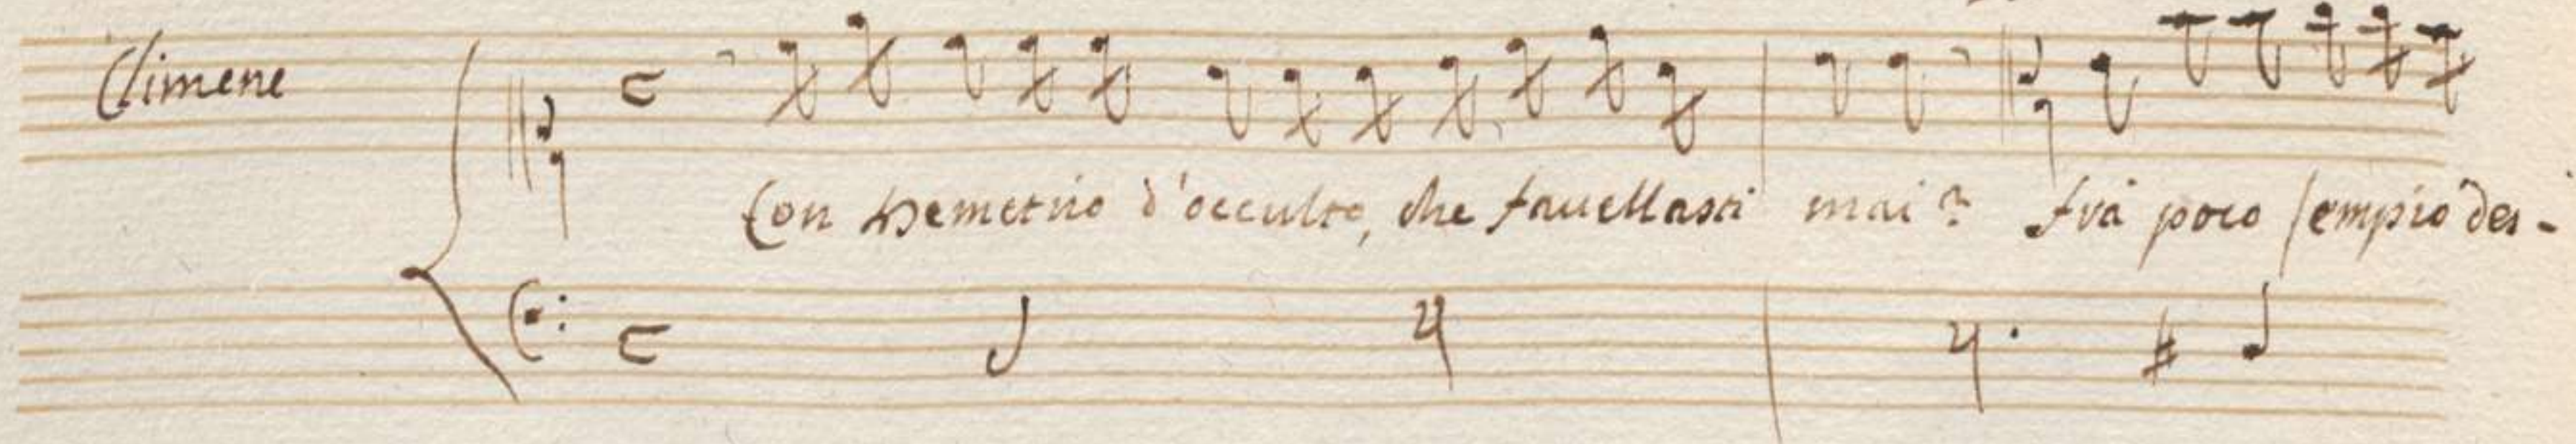 Climene
Con Demetrio d'occulto, che fauellasti mai? frà poco l'empio des-